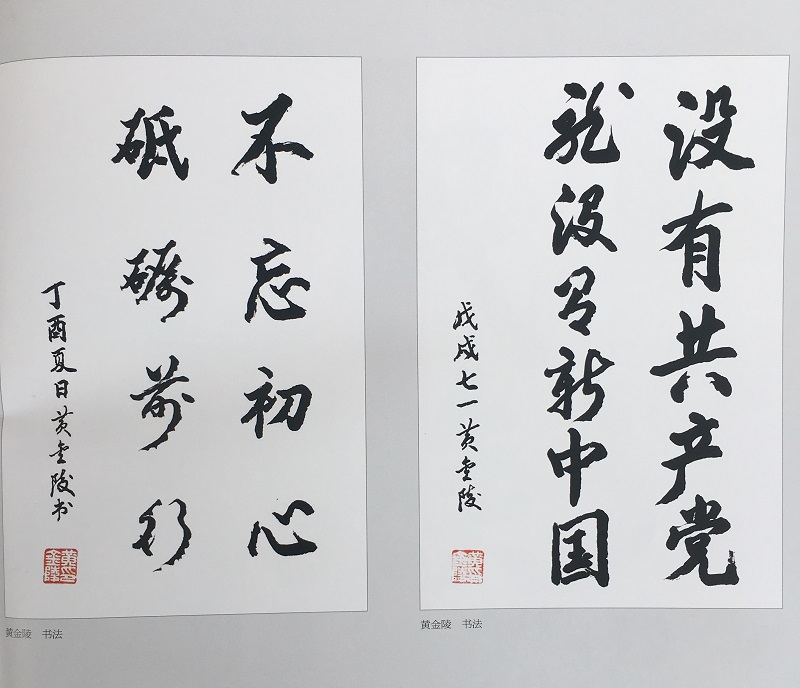 不忘初心
砥砺前行
丁酉夏日黄金陵书
黄金陵 书法
没有共产党
就没有新中国
戊戌七一黄金陵
黄金陵 书法